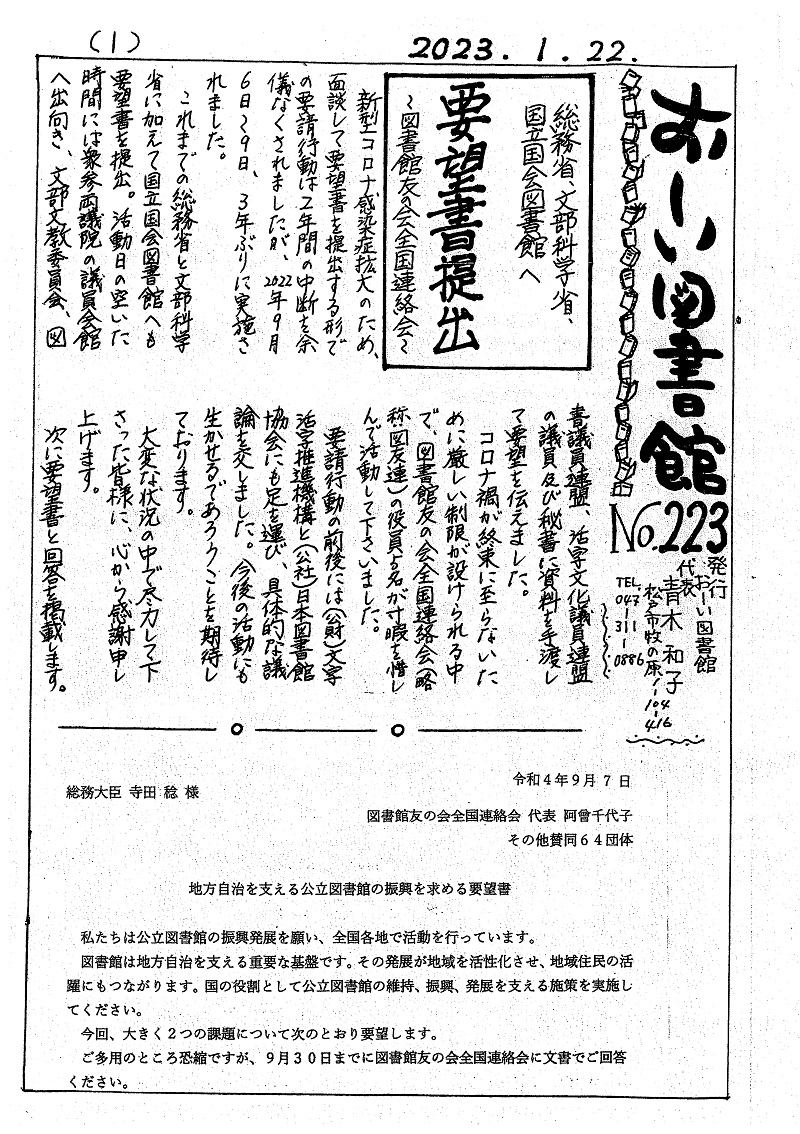 (1)
2023.1.22.
おーい図書館
No.223
発行
おーい図書館
代表
青木和子
松戸市牧の原1-104-416
TEL.
047-
311-
0886
総務省、文部科学省、
国立国会図書館へ
要望書提出
~図書館友の会全国連絡会~
新型コロナ感染症拡大のため、
面談して要望書を提出する形で
の要請行動は2年間の中断を余
儀なくされましたが、2022年9月
6日~9日、3年ぶりに実施さ
れました。
これまでの総務省と文部科学
省に加えて国立国会図書館へも
要望書を提出。活動日の空いた
時間には衆参両議院の議員会館
へ出向き、文部文教委員会、図
書議員連盟、活字文化議員連盟
の議員及び秘書に資料を手渡し
て要望を伝えました。
コロナ禍が終束に至らないた
めに厳しい制限が設けられる中
で、図書館友の会全国連絡会(略
称・図友連)の役員8名が寸暇を惜し
んで活動して下さいました。
要請行動の前後には(公財)文字
活字推進機構と(公社)日本図書館
協会にも足を運び、具体的な議
論を交しました。今後の活動にも
生かせるであろうことを期待し
ております。
大変な状況の中で尽力して下
さった皆様に、心から感謝申し
上げます。
次に要望書と回答を掲載します。
令和4年9月7日
総務大臣 寺田 稔 様
図書館友の会全国連絡会 代表 阿曾千代子
その他賛同64団体
地方自治を支える公立図書館の振興を求める要望書
私たちは公立図書館の振興発展を願い、全国各地で活動を行っています。
図書館は地方自治を支える重要な基盤です。その発展が地域を活性化させ、地域住民の活
躍にもつながります。国の役割として公立図書館の維持、振興、発展を支える施策を実施し
てください。
今回、大きく2つの課題について次のとおり要望します。
ご多用のところ恐縮ですが、9月30日までに図書館友の会全国連絡会に文書でご回答
ください。